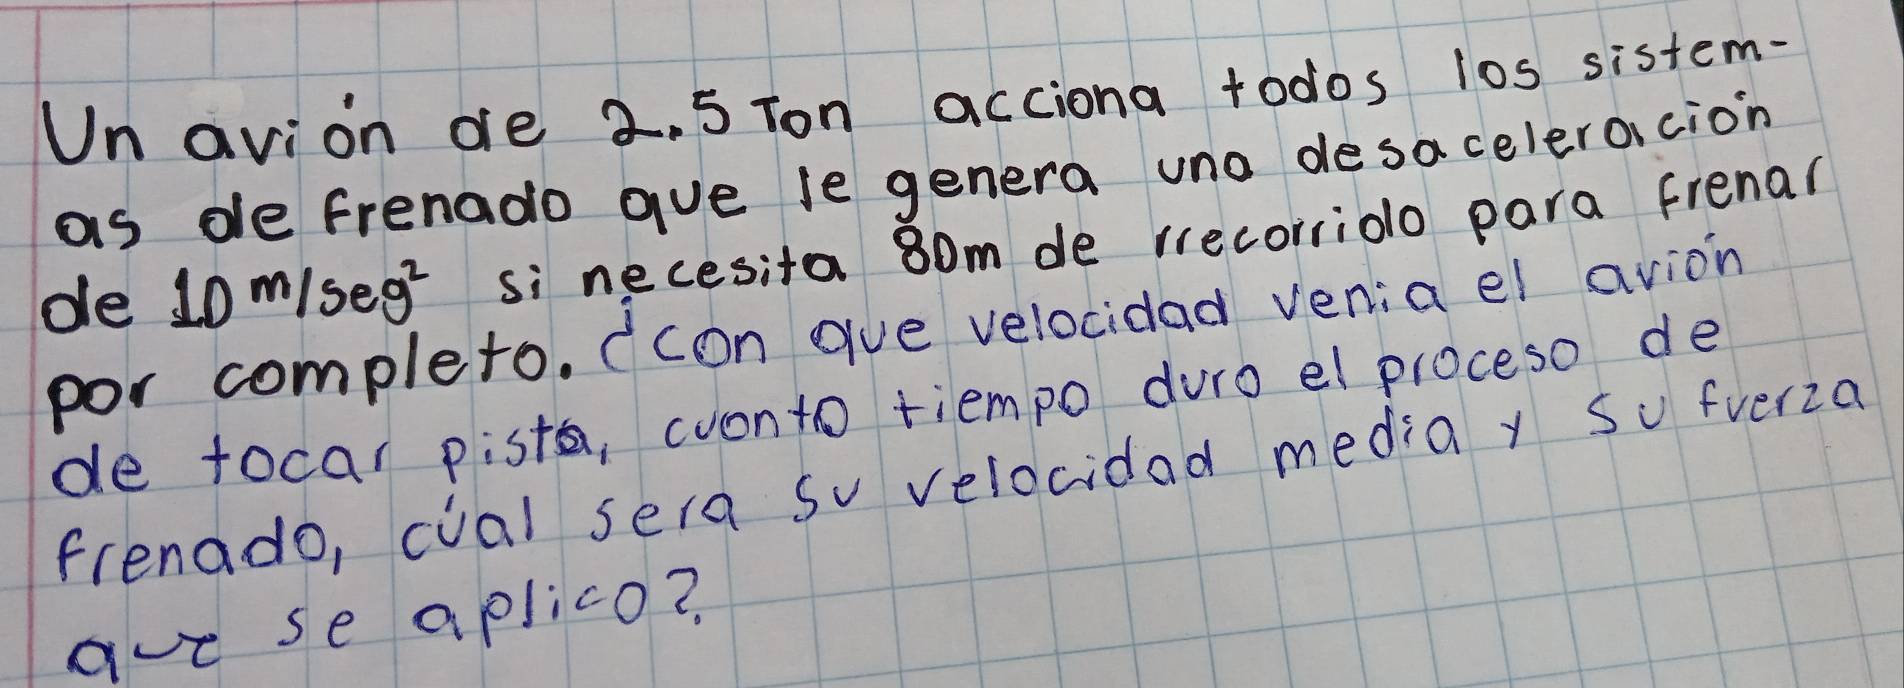 Un avión de 2.5 Ton acciona todos los sistem-
as de frenado que le genera una desaceleración
de 10 m/seg² si necesita 80m de rrecorrido para frenar
por completo. ¿con que velocidad venia el avión
de tocar pista, cuonto tiempo duro el proceso de
frenado, cúal sera su velocidad media y su fuerza
que se aplico?